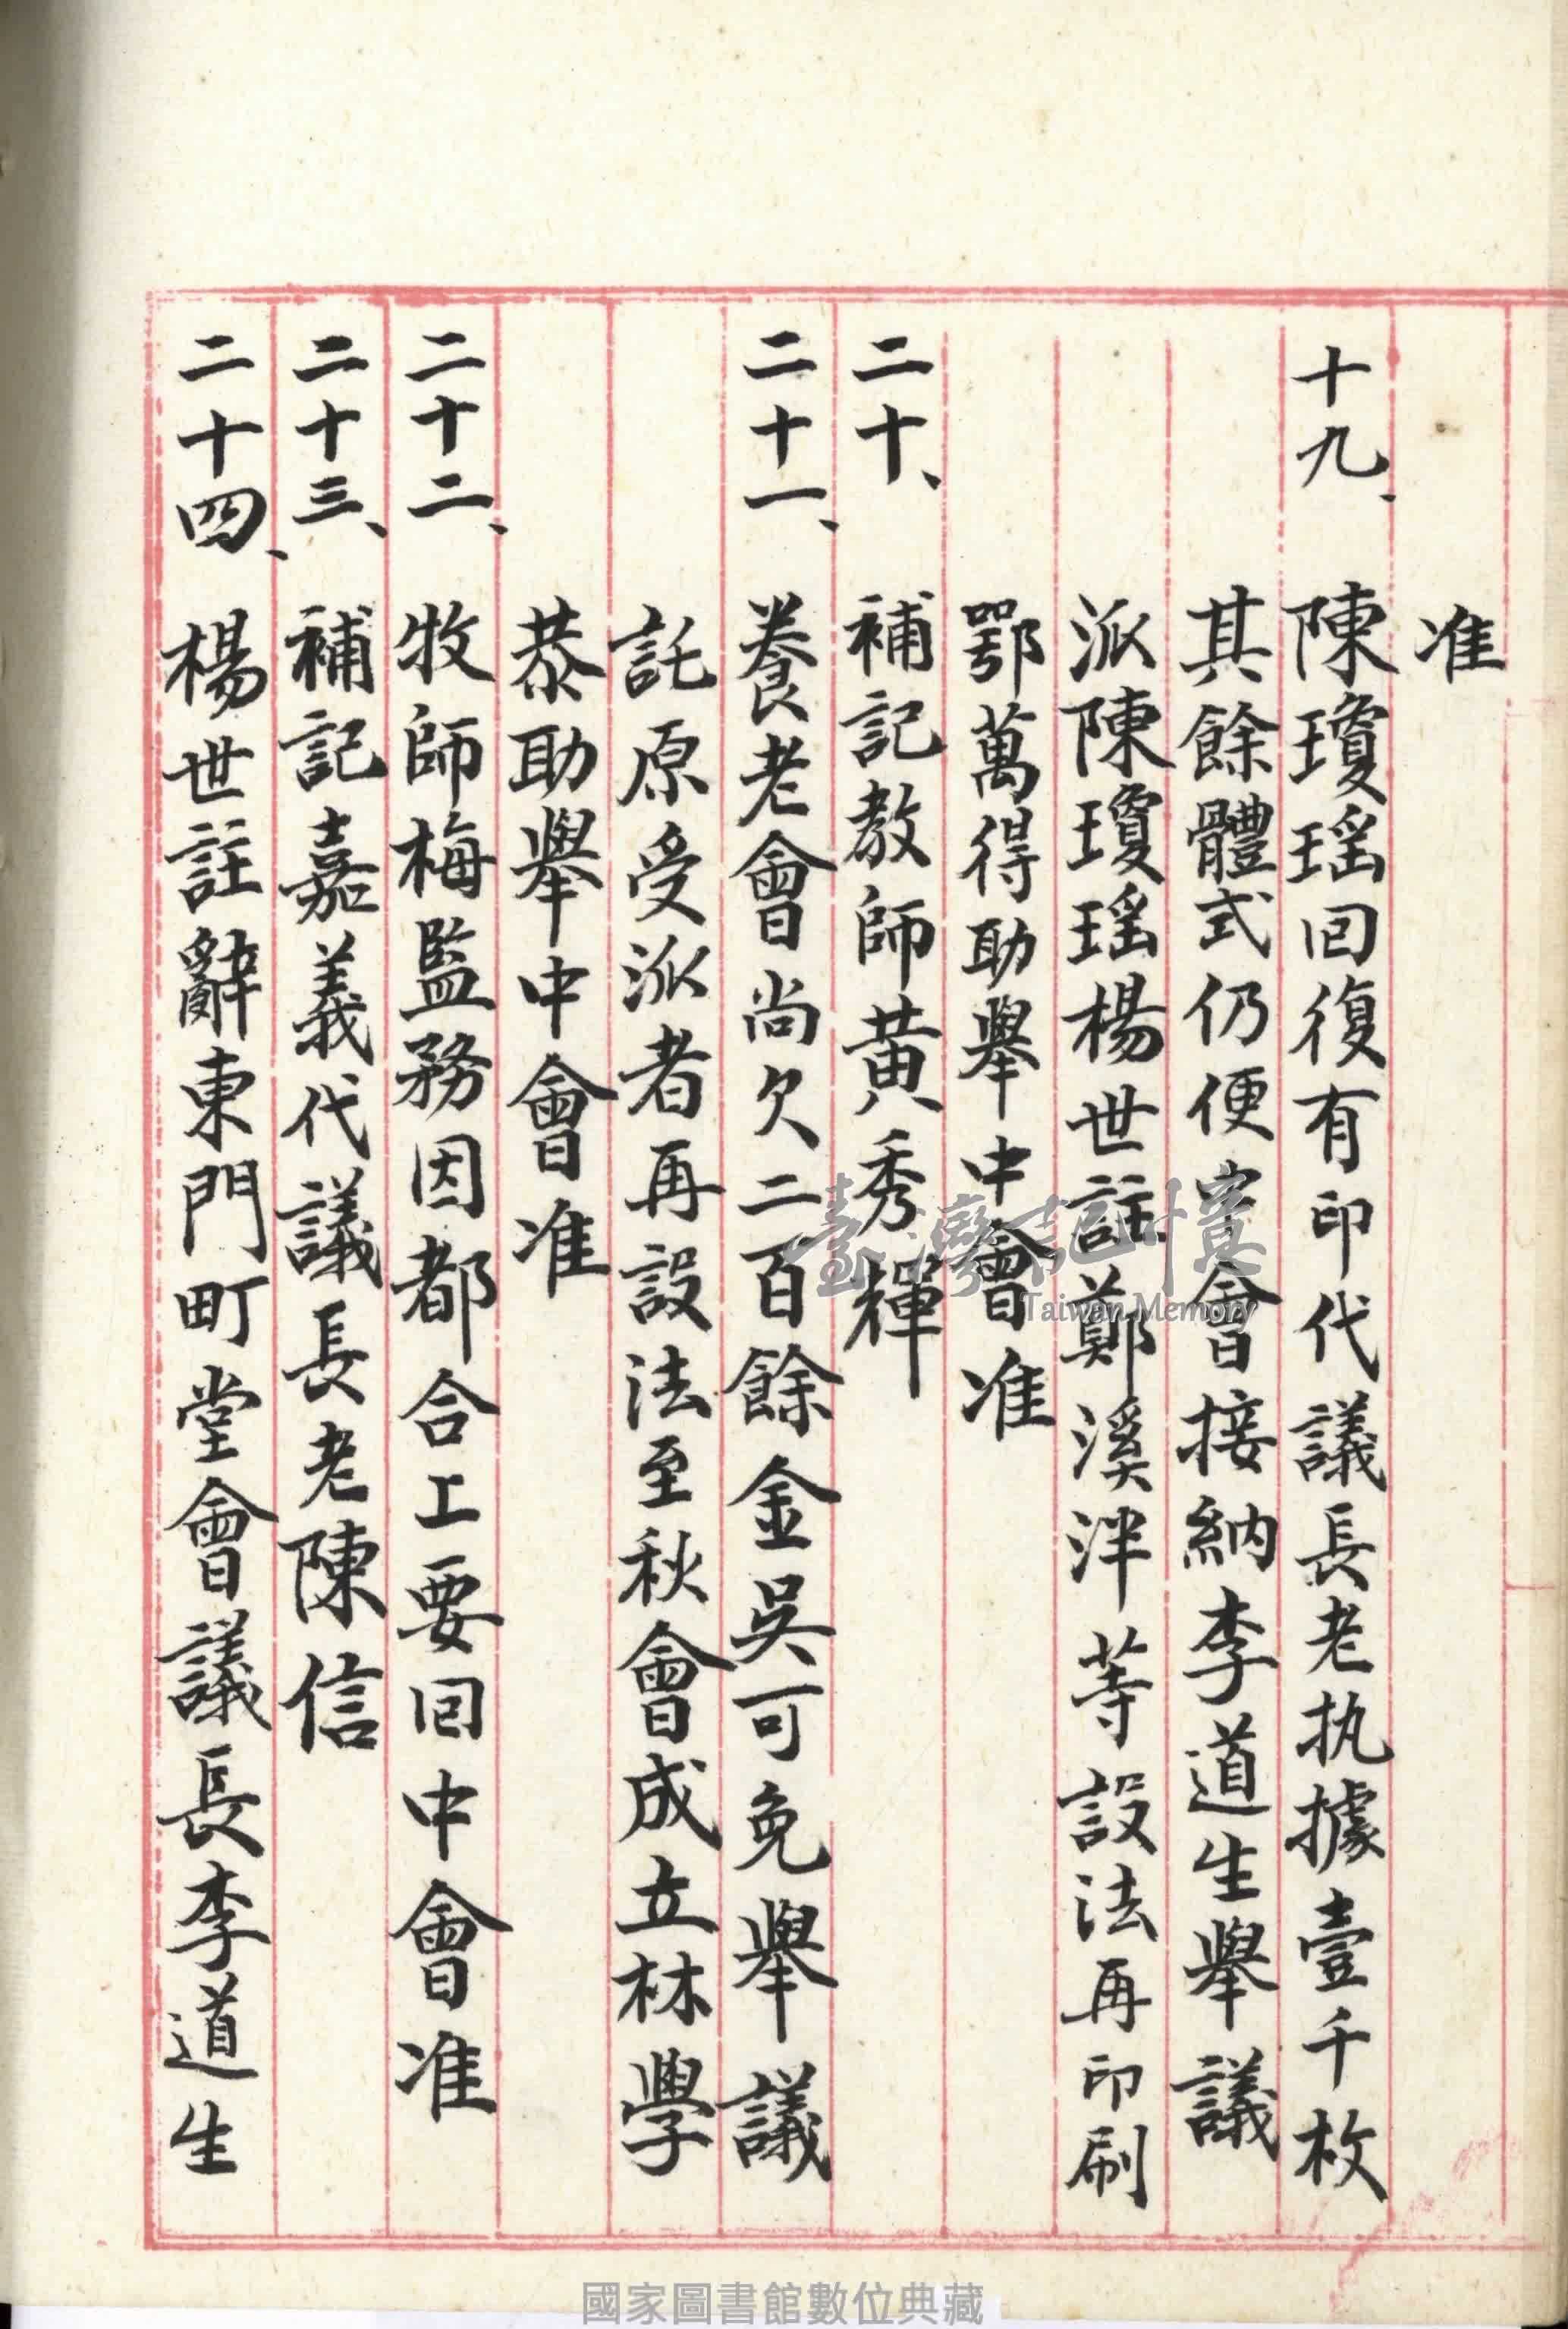 准
十九、陳瓊瑶回復有印代議長老执據壹千枚
其餘體式仍便寄會接納李道生舉議
派陳瓊瑶楊世註鄭溪泮等設法再印刷
鄂萬得助舉中會准
二十、補記教師黃秀輝
二十一、養老會尚欠二百餘金吳可免舉議
託原受派者再設法至秋會成立林學
恭助舉中會准
二十二、牧師梅監務因都合上要回中會准
二十三、補記嘉義代議長老陳信
二十四、楊世註辭東門町堂會議長李道生
臺灣記憶
Taiwan Memory
國家圖書館數位典藏